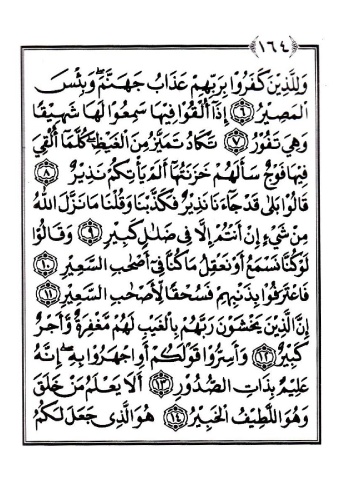 ﴿١٦٤﴾
وَلِلَّذِينَ كَفَرُوا بِرَبِّهِمْ عَذَابُ جَهَنَّمَ وَبِئْسَ
الْمَصِيرُ ﴿٦﴾ إِذَا أُلْقُوا فِيهَا سَمِعُوا لَهَا شَهِيقًا
وَهِيَ تَفُورُ ﴿٧﴾ تَكَادُ تَمَيَّزُ مِنَ الْغَيْظِ كُلَّمَا أُلْقِيَ
فِيهَا فَوْجٌ سَأَلَهُمْ خَزَنَتُهَا أَلَمْ يَأْتِكُمْ نَذِيرٌ ﴿٨﴾
قَالُوا بَلَىٰ قَدْ جَاءَنَا نَذِيرٌ فَكَذَّبْنَا وَقُلْنَا مَا نَزَّلَ اللَّهُ
مِنْ شَيْءٍ إِنْ أَنْتُمْ إِلَّا فِي ضَلَالٍ كَبِيرٍ ﴿٩﴾ وَقَالُوا
لَوْ كُنَّا نَسْمَعُ أَوْ نَعْقِلُ مَا كُنَّا فِي أَصْحَابِ السَّعِيرِ ﴿١٠﴾
فَاعْتَرَفُوا بِذَنْبِهِمْ فَسُحْقًا لِأَصْحَابِ السَّعِيرِ ﴿١١﴾
إِنَّ الَّذِينَ يَخْشَوْنَ رَبَّهُمْ بِالْغَيْبِ لَهُمْ مَغْفِرَةٌ وَأَجْرٌ
كَبِيرٌ ﴿١٢﴾ وَأَسِرُّوا قَوْلَكُمْ أَوِ اجْهَرُوا بِهِ إِنَّهُ
عَلِيمٌ بِذَاتِ الصُّدُورِ ﴿١٣﴾ أَلَا يَعْلَمُ مَنْ خَلَقَ
وَهُوَ اللَّطِيفُ الْخَبِيرُ ﴿١٤﴾ هُوَ الَّذِي جَعَلَ لَكُمُ